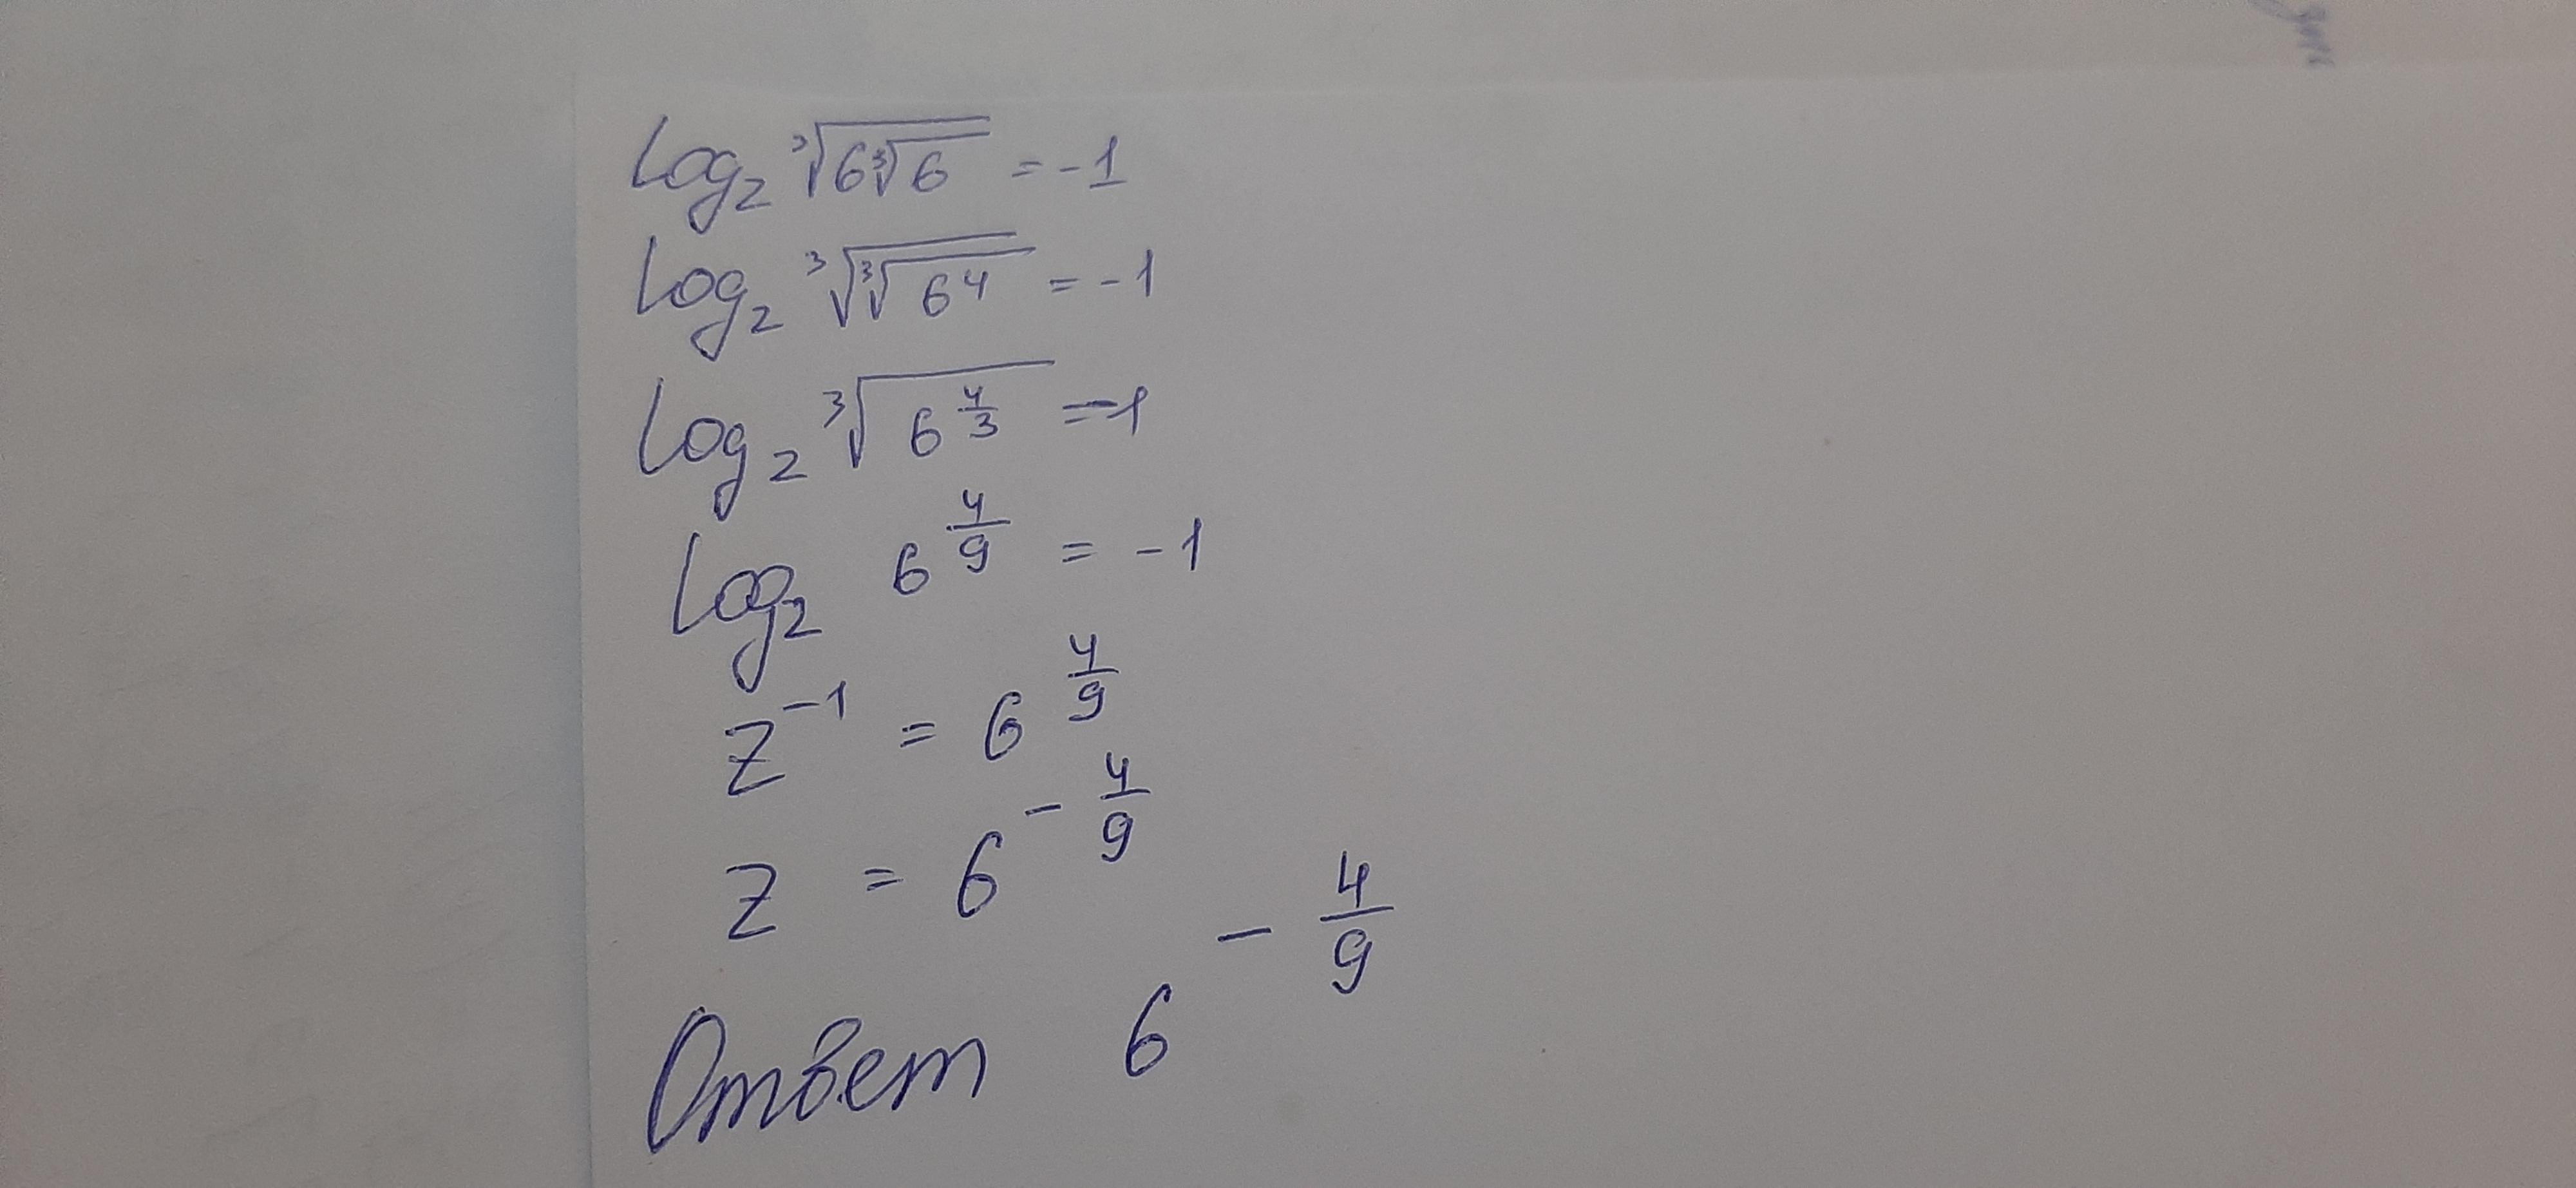 log_z ∛(6∛6) = -1
log_z ∛(∛(6⁴)) = -1
log_z ∛(6^(4/3)) = -1
log_z 6^(4/9) = -1
z^(-1) = 6^(4/9)
z = 6^(-4/9)
Ответ 6^(-4/9)